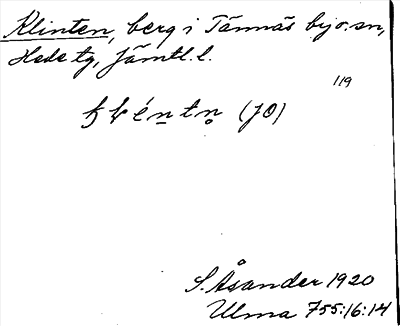 Klinten, berg i Tännäs by o. sn,
Hede tg, Jämtl. l.
119
(JO)
S. Åsander 1920
Ulma 755:16:14